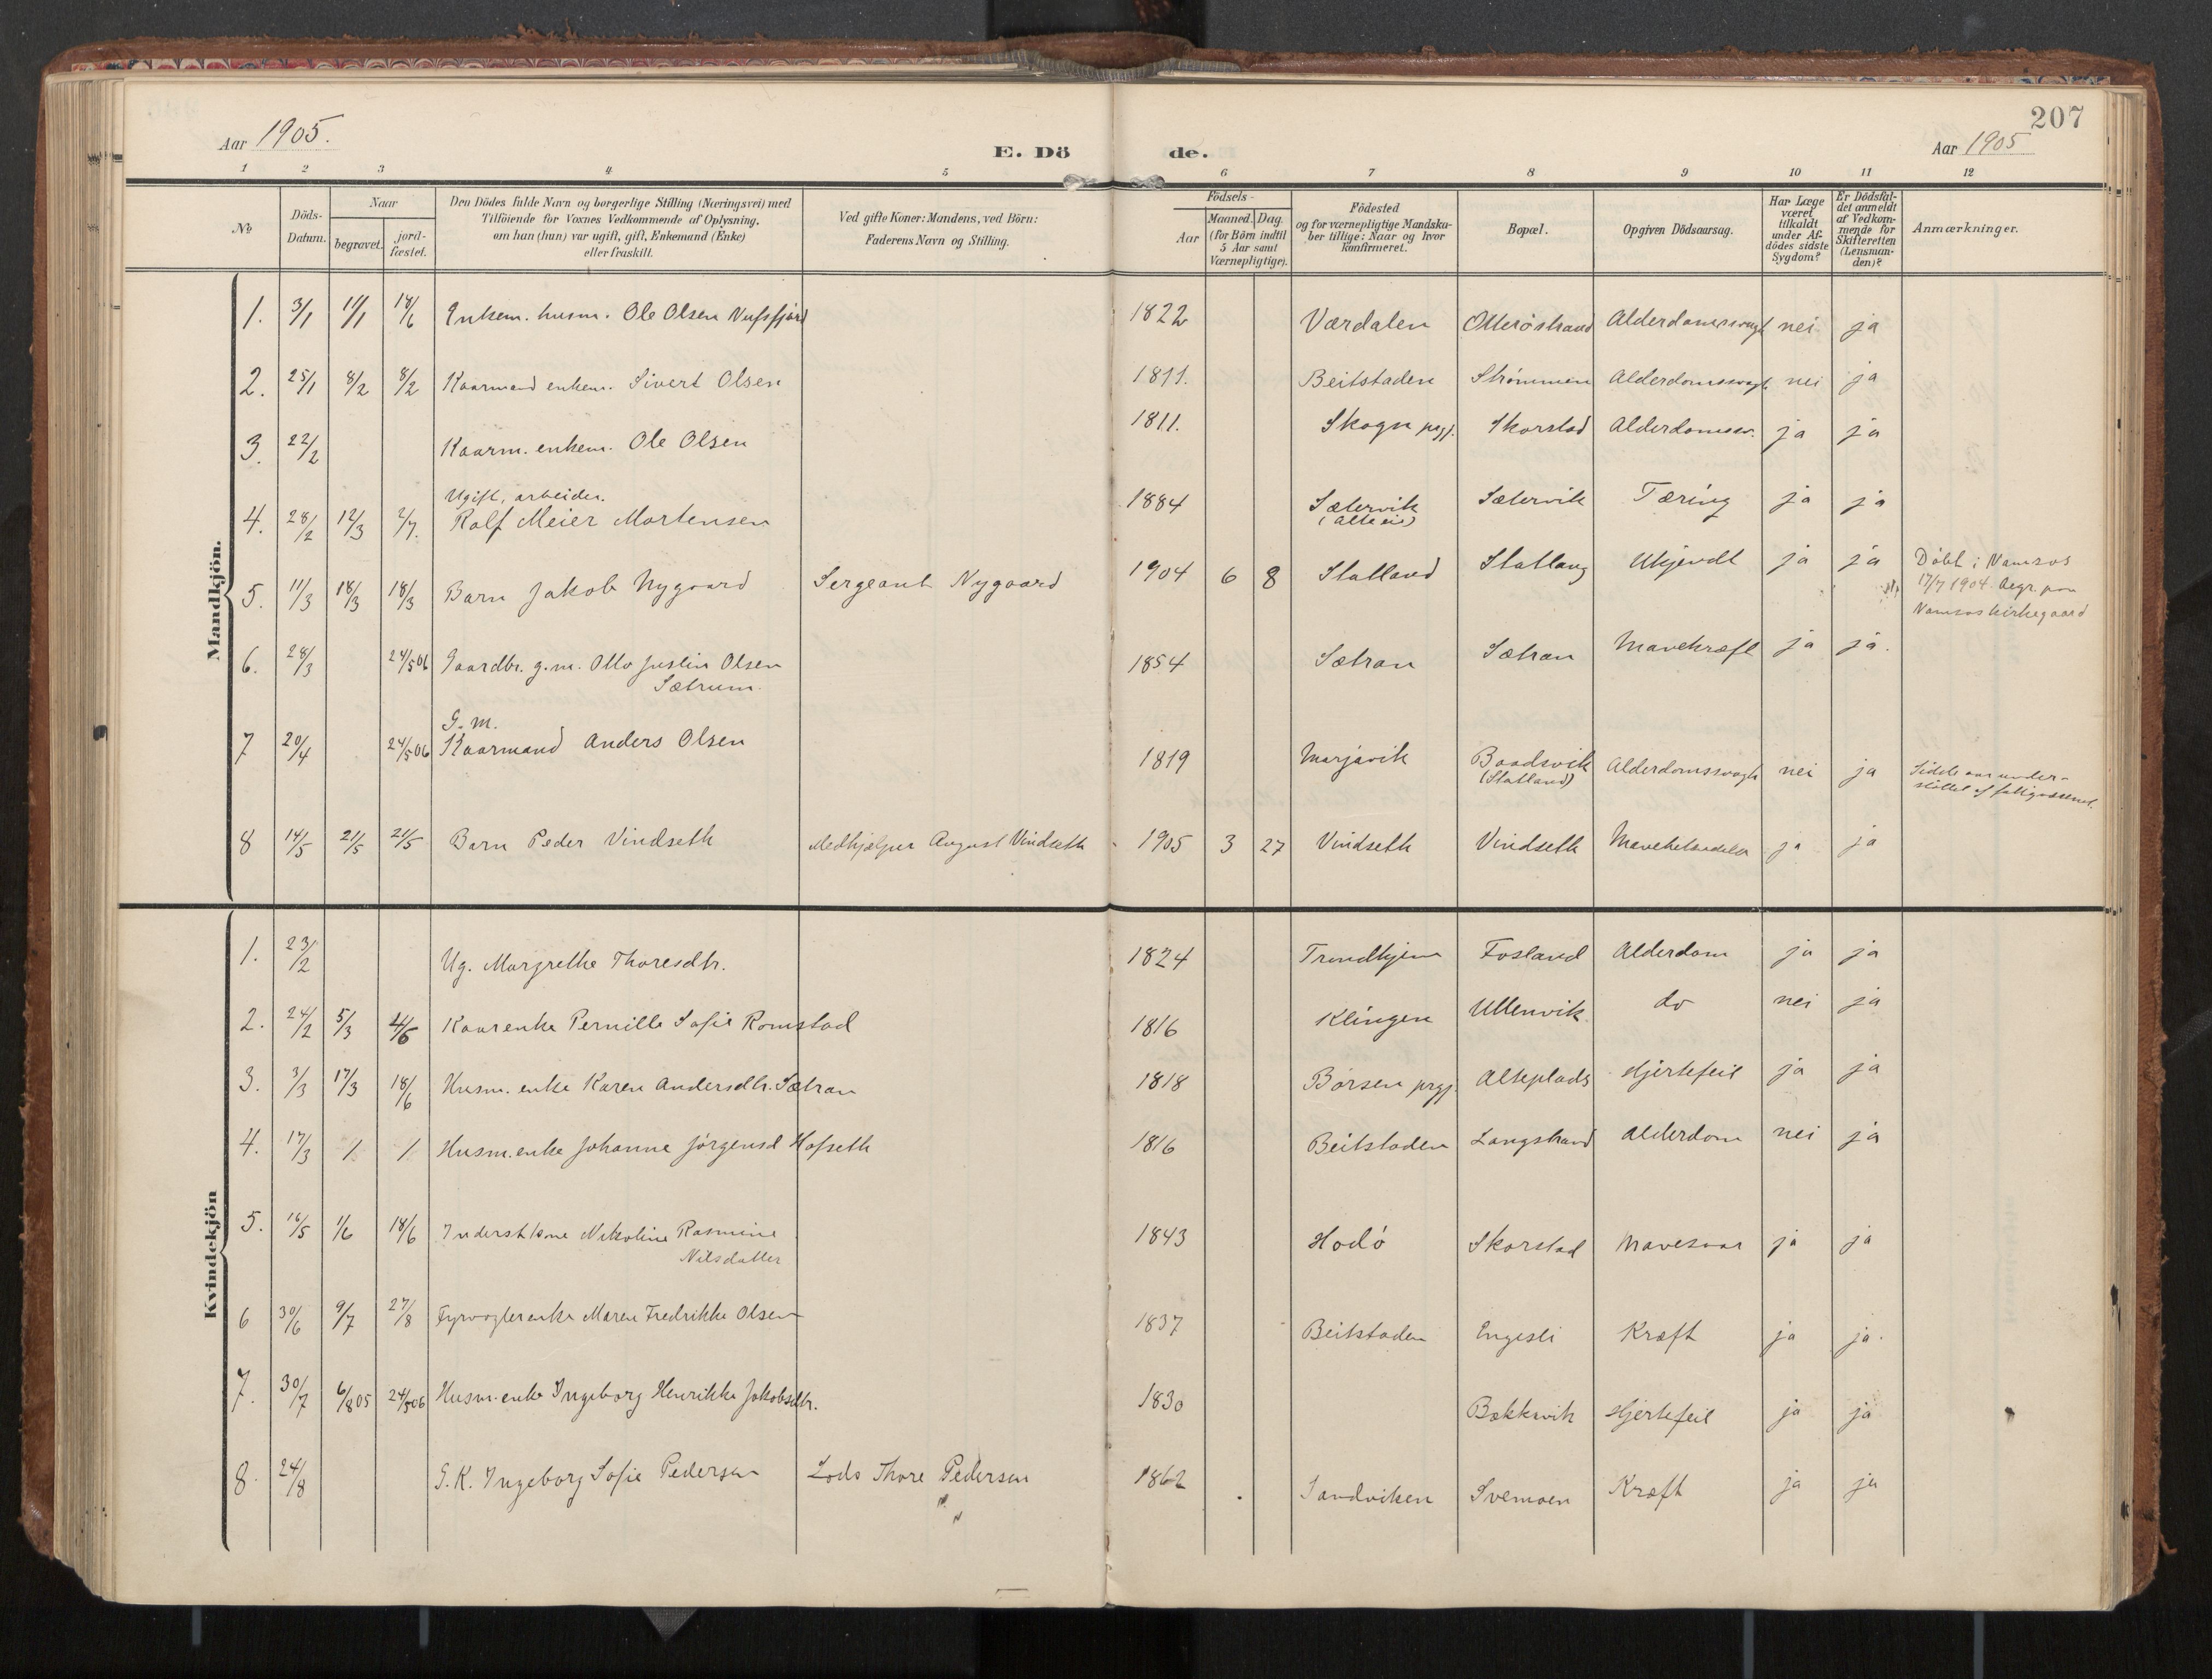 207
Aar 1905.
E. Dö de.
Aar 1905
1 2 3 4 5 6 7 8 9 10 11 12
No
Döds-Datum.
Naar
begravet.
jord-fæstet.
Den Dödes fulde Navn og borgerlige Stilling (Næringsvei) med
Tilföiende for Voxnes Vedkommende af Oplysning,
om han (hun) var ugift, gift, Enkemand (Enke)
eller fraskilt.
Ved gifte Koner: Mandens, ved Börn:
Faderens Navn og Stilling.
Födsels-
Aar
Maaned. Dag.
(for Börn indtil
5 Aar samt
Værnepligtige).
Födested
og for værnepligtige Mandska-
ber tillige: Naar og hvor
konfirmeret.
Bopæl.
Opgiven Dödsaarsag.
Har Læge
været
tilkaldt
under Af-
dödes sidste
Sygdom?
Er Dödsfal-
det anmeldt
af Vedkom-
mende for
Skifteretten
(Lensman-
den)?
Anmærkninger.
Mandkjön.
1. 3/1 11/1 18/6 Enkem. husm. Ole Olsen Nufsfjord 1822 Værdalen Otteröstrand Alderdomssvagh nei ja
2. 25/1 8/2 8/2 Kaarmand enkem. Sivert Olsen 1811. Beitstaden Strömmen Alderdomssvagh nei ja
3. 22/2 Kaarm. enkem. Ole Olsen 1811. Skogn prgj. Skorstad Alderdomssv. ja ja
Ugift, arbeider.
4. 28/2 12/3 2/7. Rolf Meier Mortensen 1884 Sætervik Sætervik Tæring ja ja
(Alteeid)
5. 11/3 18/3 18/3 Barn Jakob Nygaard Sergeant Nygaard 1904 6 8 Statland Statland Ukjendt ja ja Döbt i Namsos
17/7 1904. Begr. paa
Namsos kirkegaard
6. 28/3 24/5 06 Gaardbr. g.m. Otto Justin Olsen 1854 Sætran Sætran Mavekræft ja ja.
Sætrum.
G. m.
7 20/4 24/5 06 Kaarmand Anders Olsen 1819 Marjavik Baadsvik Alderdomssvagh nei ja Sidste aar under-
(Statland) stöttet af fattigvæsenet.
8 14/5 21/5 21/5 Barn Peder Vindseth Medhjælper August Vindseth 1905 3 27 Vindseth Vindseth ja ja
Kvindekjön
1. 23/2 Ug. Margrethe Thoresdtr. 1824 Trondhjem Fosland Alderdom ja ja
2. 24/2 5/3 Kaarenke Pernille Sofie Romstad 1816 Klingen Ullenvik. do nei ja
3. 3/3 17/3 18/6 Husm. enke Karen Andersdtr. Sætran 1818 Börsen prgj. Alteplads Hjertefeil ja ja
4. 17/3 / / Husm. enke Johanne Jörgensd Hofseth 1816 Beitstaden Langstrand Alderdom nei ja
5. 16/5 1/6 18/6 Inderst kone Nikoline Rasmine 1843 Hodö Skorstad Mavesaar ja ja
Nilsdatter
6 30/6 9/7 27/8 Fyrvogterenke Maren Fredrikke Olsen 1837 Beitstaden Engesli Kræft ja ja.
7. 30/7 6/8 05 24/5 06 Husm. enke Ingeborg Henrikke Jakobsdtr. 1830 Bækkvik Hjertefeil ja ja
8. 24/8 G. K. Ingeborg Sofie Pedersen Lods Thore Pedersen 1862 Sandviken Svemoen Kræft ja ja